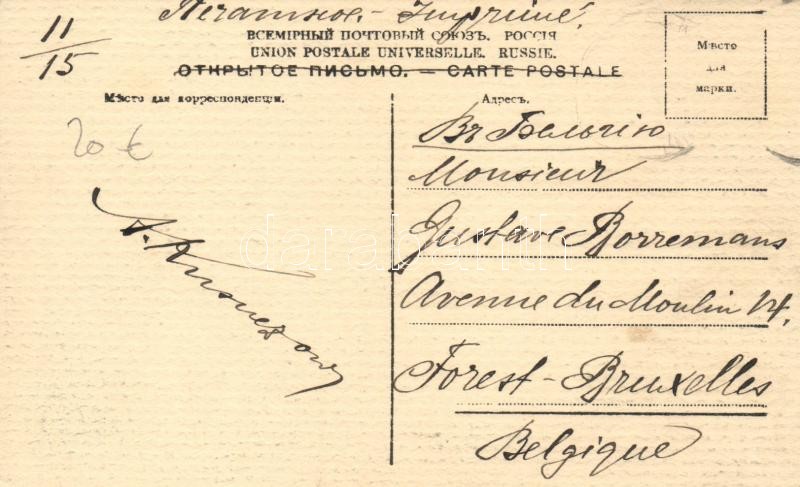 Печатное. - Imprimé.
11
15
ВСЕМІРНЫЙ ПОЧТОВЫЙ СОЮЗЪ. РОССІЯ
UNION POSTALE UNIVERSELLE. RUSSIE.
ОТКРЫТОЕ ПИСЬМО. — CARTE POSTALE
Мѣсто для марки.
Мѣсто для корреспонденціи.
Адресъ.
20 €
Въ Бельгію
Monsieur
Gustave Borremans
Avenue du Moulin 14.
Forest-Bruxelles
Belgique
A. Kusnezow
darabanth